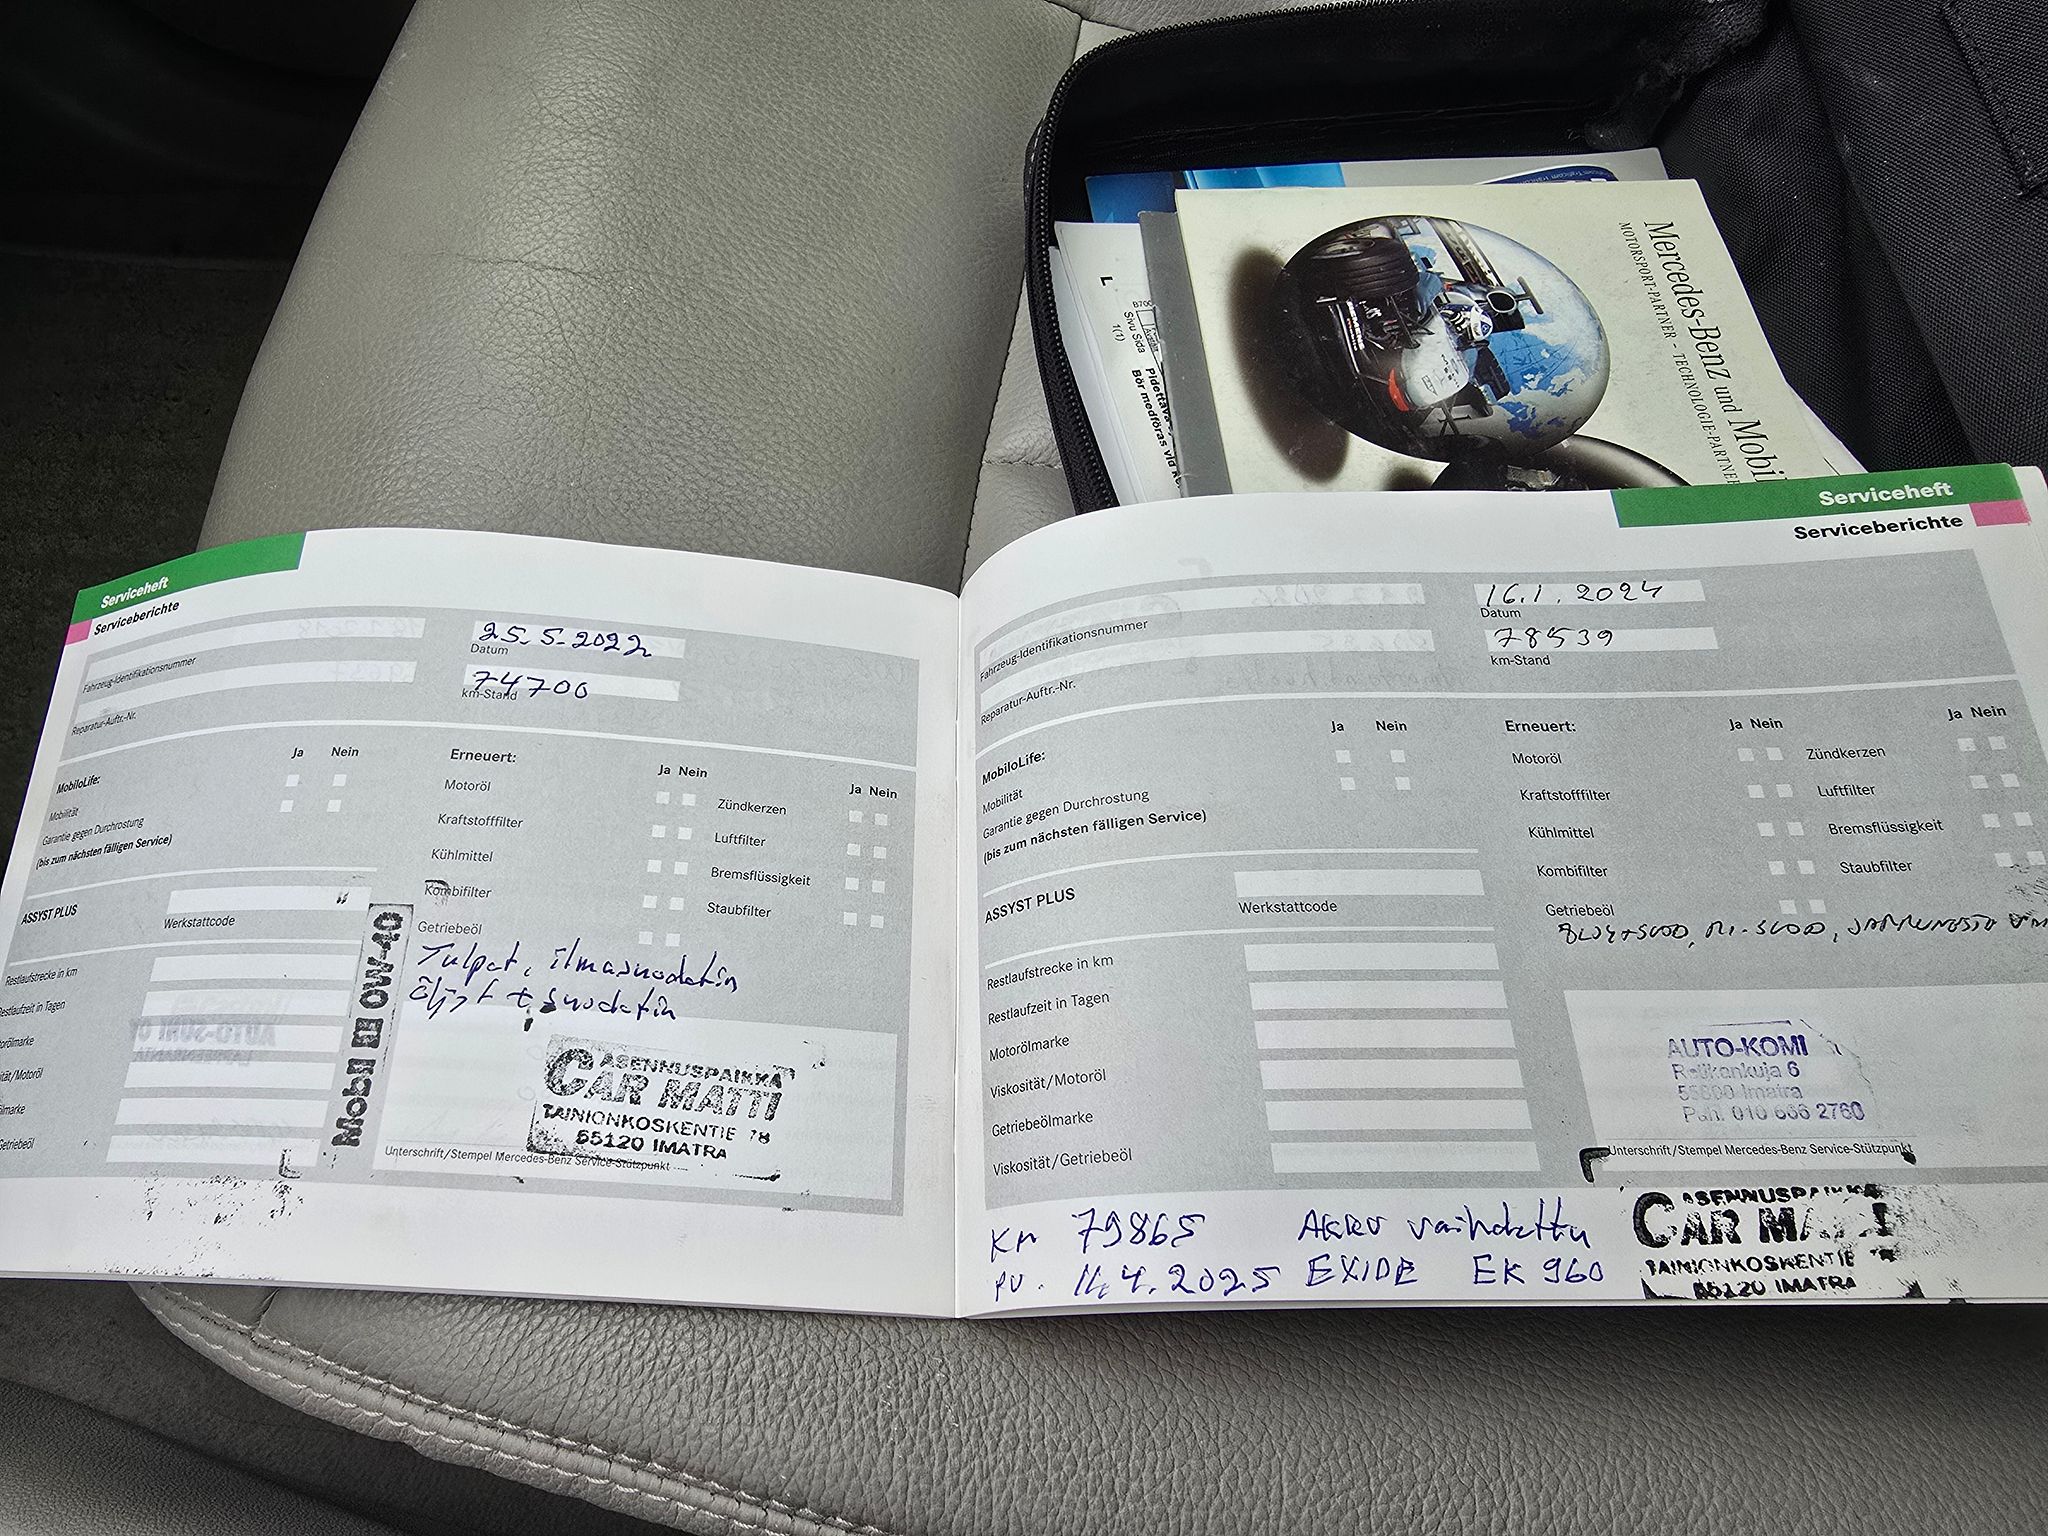 Mercedes-Benz und Mobil
MOTORSPORT-PARTNER - TECHNOLOGIE-PARTNER
L
B700
Sivu Sida
1(1)
Bör medföras vid
Serviceheft
Serviceberichte
25.5.2022
Datum
Fahrzeug-Identifikationsnummer
74700
km-Stand
Reparatur-Auftr.-Nr.
Ja Nein
Erneuert:
Ja Nein
Ja Nein
MobiloLife:
Motoröl
Zündkerzen
Mobilität
Kraftstofffilter
Luftfilter
Garantie gegen Durchrostung
(bis zum nächsten fälligen Service)
Kühlmittel
Bremsflüssigkeit
Kombifilter
Staubfilter
ASSYST PLUS
Werkstattcode
Getriebeöl
Tulpat, ilmasuodatin
öljyt + suodatin
Restlaufstrecke in km
Restlaufzeit in Tagen
Motorölmarke
Mobil 1 0W-40
ASENNUSPAIKKA
CAR MATTI
TAINIONKOSKENTIE 78
55120 IMATRA
Unterschrift/Stempel Mercedes-Benz Service-Stützpunkt
Serviceheft
Serviceberichte
16.1.2024
Datum
Fahrzeug-Identifikationsnummer
78539
km-Stand
Reparatur-Auftr.-Nr.
Ja Nein
Erneuert:
Ja Nein
Ja Nein
MobiloLife:
Motoröl
Zündkerzen
Mobilität
Kraftstofffilter
Luftfilter
Garantie gegen Durchrostung
(bis zum nächsten fälligen Service)
Kühlmittel
Bremsflüssigkeit
Kombifilter
Staubfilter
ASSYST PLUS
Werkstattcode
Getriebeöl
Restlaufstrecke in km
Restlaufzeit in Tagen
Motorölmarke
Viskosität/Motoröl
Getriebeölmarke
Viskosität/Getriebeöl
AUTO-KOMI
Reükankuja 6
55800 Imatra
Puh. 010 666 2760
Unterschrift/Stempel Mercedes-Benz Service-Stützpunkt
Km 79865 Akku vaihdettu
pv. 14.4.2025 EXIDE EK 960
ASENNUSPAIKKA
CAR MATTI
TAINIONKOSKENTIE
55120 IMATRA